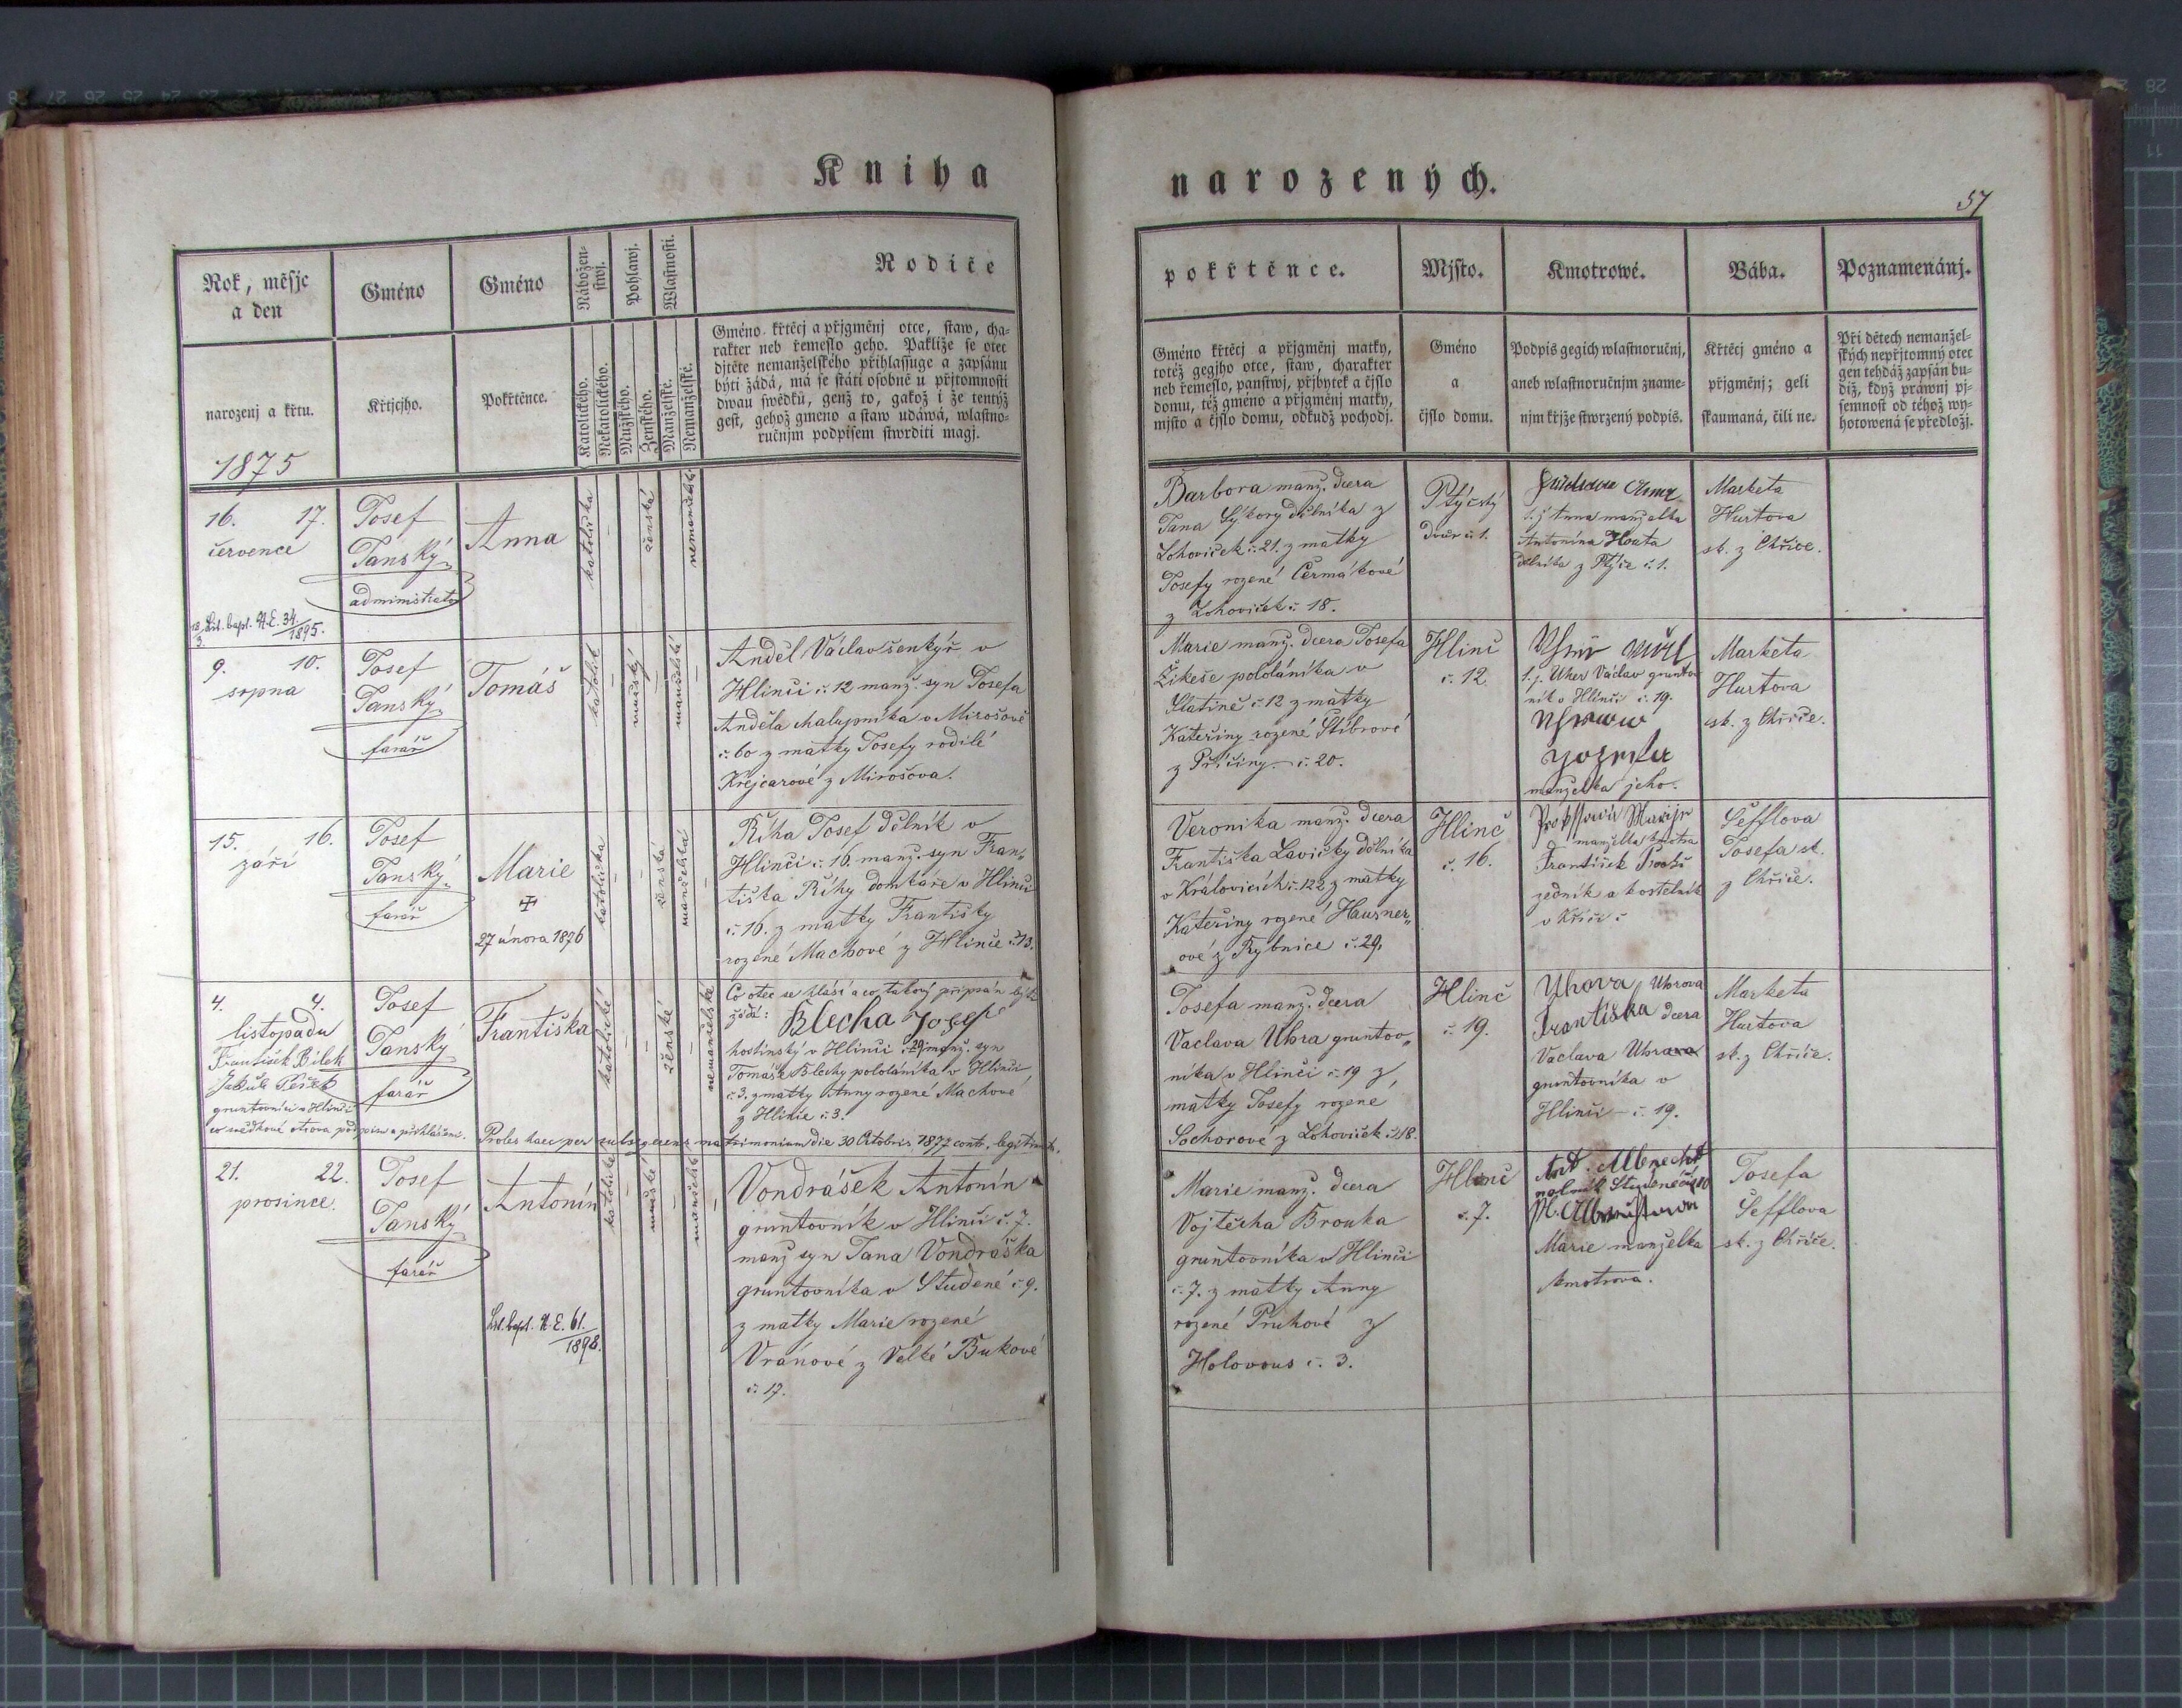 Kniha
narozených.
57
Rok, měsjc
a den
Gméno
Gméno
Nábožen-
stwj.
Pohlawj.
Wlastnosti.
Rodiče
narozenj a křtu.
Křtjcjho.
Pokřtěnce.
Katolického.
Nekatolického.
Mužského.
Ženského.
Manželské.
Nemanželské.
Gméno křtěcj a přjgměnj otce, staw, cha-
rakter neb řemeslo geho. Pakliže se otec
djtěte nemanželského přihlassuge a zapsánu
býti žádá, má se státi osobně u přjtomnosti
dwau swědků, genž to, gakož i že tentýž
gest, gehož gmeno a staw udáwá, wlastno-
ručnjm podpisem stwrditi magj.
1875
pokřtěnce.
Mjsto.
Kmotrowé.
Bába.
Poznamenánj.
Gméno křtěcj a přjgměnj matky,
totéž gegjho otce, staw, charakter
neb řemeslo, panstwj, přjbytek a čjslo
domu, též gméno a přjgměnj matky,
mjsto a čjslo domu, odkudž pochodj.
Gméno
a
čjslo domu.
Podpis gegich wlastnoručnj,
aneb wlastnoručnjm zname-
njm křjže stwrzený podpis.
Křtěcj gméno a
přjgměnj; geli
skaumaná, čili ne.
Při dětech nemanžel-
ských nepřjtomný otec
gen tehdáž zapsán bu-
diž, když práwnj pj-
semnost od téhož wy-
hotowená se předložj.
16. 17.
července
Lit. bapt. N.E. 34.
1895.
Josef
Janský
administrator
Anna
katolička
ženská
nemanželská
Barbora manž. dcera
Jana Sýkory dělníka z
Lohoviček č. 21. z matky
Josefy rozené Čermákové
z Lohoviček č. 18.
Ptýčský
dvůr č. 1.
t. j. Anna manželka
Antonína Houta
dělníka z Ptýče č. 1.
Marketa
Hurtova
sk. z Chříče.
9. 10.
srpna
Josef
Janský
farář
Tomáš
katolík
mužský
manželské
Anděl Václav šenkýř v
Hlinči č. 12 manž. syn Josefa
Anděla chalupníka v Mirošově
č. 60 z matky Josefy rodilé
Krejcarové z Mirošova.
Marie manž. dcera Josefa
Žikeše pololáníka v
Slatině č. 12 z matky
Kateřiny rozené Stibrové
z Příčiny č. 20.
Hlinč
č. 12.
t. j. Uher Václav grunto
ník v Hlinči č. 19.
manželka jeho.
Marketa
Hurtova
sk. z Chříče.
15. 16.
září
Josef
Janský
farář
Marie
✠
27 února 1876
katolička
ženská
manželská
Říha Josef dělník v
Hlinči č. 16. manž. syn Fran„
tiška Říhy domkáře v Hlinči
č. 16. z matky Františky
rozené Machové z Hlinče č. 13.
Veronika manž. dcera
Františka Lavičky dělníka
v Kralovicích č. 122 z matky
Kateřiny rozené Hausner„
ové z Rybnice č. 29.
Hlinč
č. 16.
manželka kmotra
František
zedník a kostelník
v Kříči č
Šefflova
Josefa sk.
z Chříče.
4. 4.
listopadu
František Bílek
gruntovníci v Hlinči
co svědkové otcova podpisu a přihlášení.
Josef
Janský
farář
Františka
katolické
ženské
nemanželské
Co otec se hlásí a co takový připsán býti
žádá: Blecha Josef
hostinský v Hlinči č. 29 manž. syn
Tomáše Blechy pololáníka v Hlinči
č. 3. z matky Anny rozené Machové
z Hlinče č. 3.
Proles haec per subsequens matrimonium die 30 Octobris 1877 contr. legitimata.
Josefa manž. dcera
Vaclava Uhra gruntov„
níka v Hlinči č. 19 z
matky Josefy rozené
Sochorové z Lohoviček č. 18.
Hlinč
č. 19.
Uhrova
Františka dcera
Vaclava Uhra
gruntovníka v
Hlinči – č. 19.
Marketa
Hurtova
sk. z Chříče.
21. 22.
prosince.
Josef
Janský
farář
Antonín
Lit. bapt. N.E. 61.
1898.
katolické
mužské
manželské
Vondrášek Antonín
gruntovník v Hlinči č. 7.
manž syn Jana Vondráška
gruntovníka v Studené č 9.
z matky Marie rozené
Vránové z Velké Bukové
č. 17.
Marie manž. dcera
Vojtěcha Brouka
gruntovníka v Hlinči
č. 7. z matky Anny
rozené Pruhové z
Holovous č. 3.
Hlinč
č. 7.
Ant. Albrecht
Marie manželka
kmotrova.
Josefa
Šefflova
sk. z Chříče.